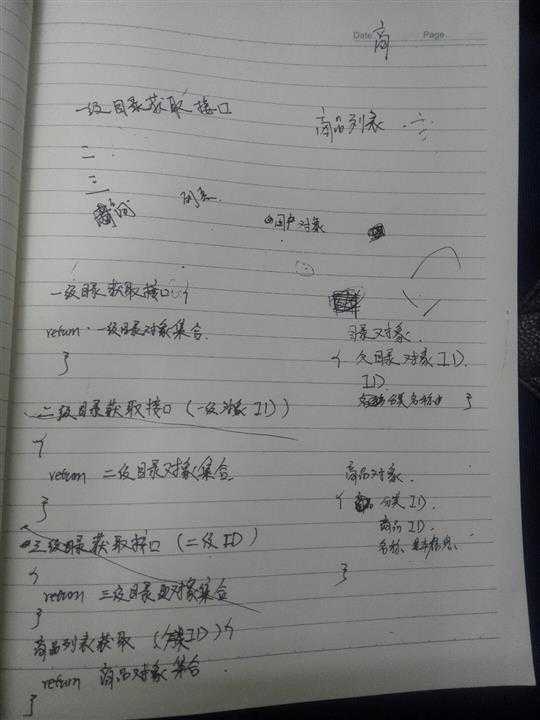 Date 商 Page
一级目录获取接口
商品列表
二
三
用户对象
一级目录获取接口{
return 一级目录对象集合
}
目录对象
{ 父目录对象ID
ID
分类名称 }
二级目录获取接口(一级对象ID)
{
return 二级目录对象集合
}
商品对象
{ 分类ID
商品ID
名称、基本信息、
}
三级目录获取接口(二级ID)
{
return 三级目录对象集合
}
商品列表获取(分类ID){
return 商品对象集合
}